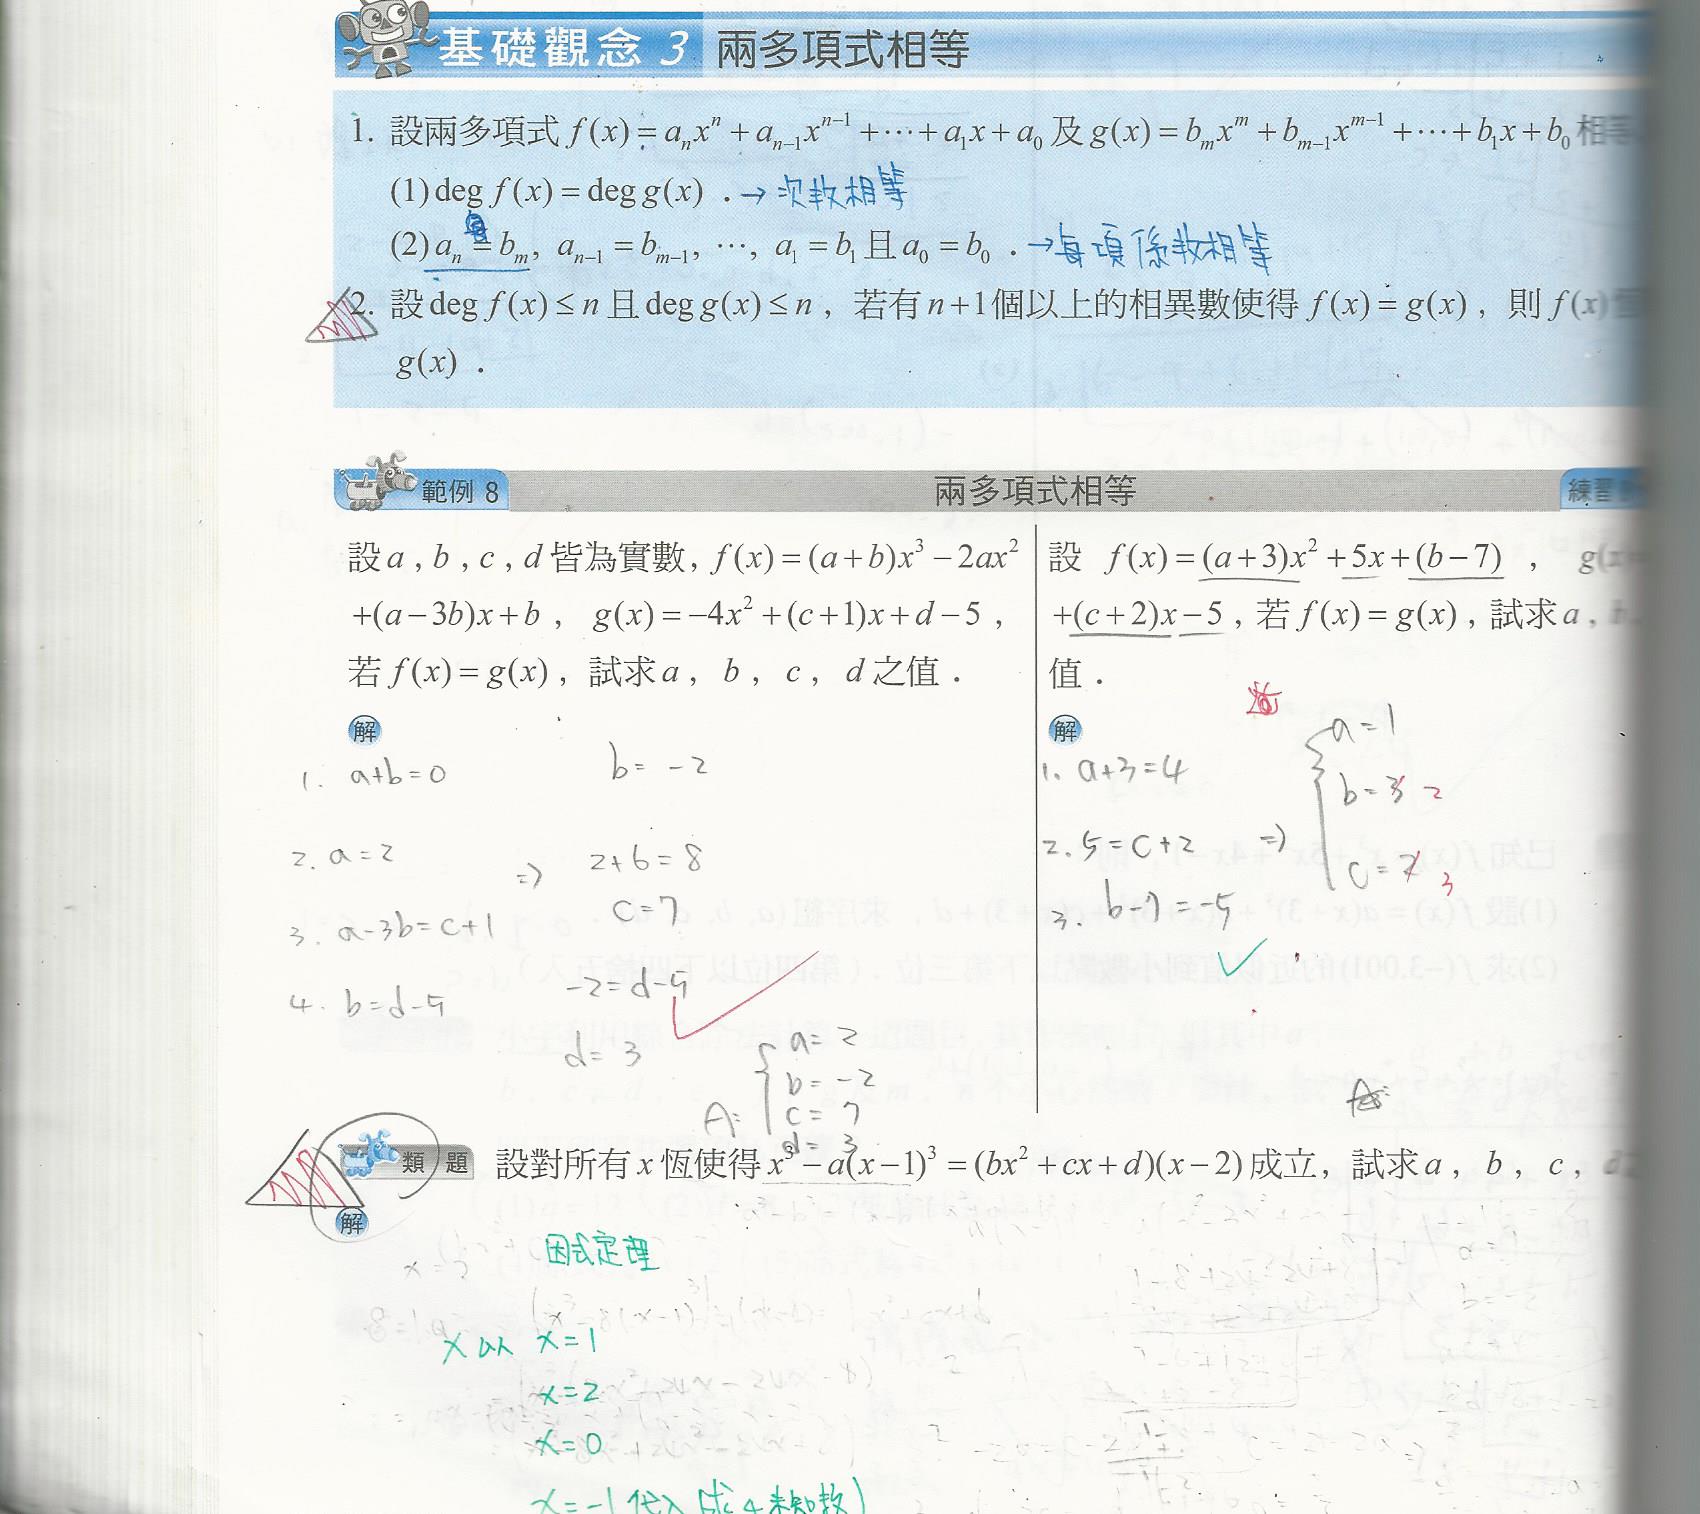 基礎觀念 3 兩多項式相等
1. 設兩多項式 f(x) = aₙxⁿ + aₙ₋₁xⁿ⁻¹ + ⋯ + a₁x + a₀ 及 g(x) = bₘxᵐ + bₘ₋₁xᵐ⁻¹ + ⋯ + b₁x + b₀ 相等
(1) deg f(x) = deg g(x) . → 次數相等
(2) aₙ = bₘ, aₙ₋₁ = bₘ₋₁, ⋯, a₁ = b₁ 且 a₀ = b₀ . → 每項係數相等
2. 設 deg f(x) ≤ n 且 deg g(x) ≤ n , 若有 n+1 個以上的相異數使得 f(x) = g(x) , 則 f(x)
g(x) .
範例 8 兩多項式相等 練習
設 a , b , c , d 皆為實數, f(x) = (a+b)x³ − 2ax²
+(a−3b)x + b , g(x) = −4x² + (c+1)x + d − 5 ,
若 f(x) = g(x) , 試求 a , b , c , d 之值 .
解
1. a+b=0
2. a=2
3. a-3b=c+1
4. b=d-5
b= -2
⇒ 2+6=8
c=7
-2=d-5
d= 3
A: a= 2
b= -2
c= 7
d= 3
設 f(x) = (a+3)x² + 5x + (b−7) , g(x)
+(c+2)x − 5 , 若 f(x) = g(x) , 試求 a ,
值 .
解
1. a+3=4
2. 5=c+2 ⇒
3. b-7=-5
a=1
b=3 2
c=2 3
A:
類題 設對所有 x 恆使得 x³ − a(x−1)³ = (bx² + cx + d)(x−2) 成立, 試求 a , b , c , d
解
因式定理
x 以 x=1
x=2
x=0
x=-1 代入 (求4未知數)